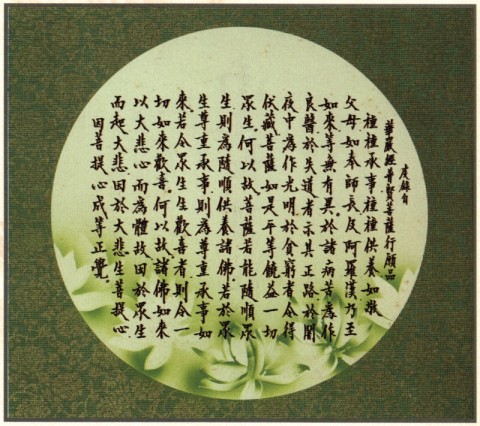 虔錄自
華嚴經普賢菩薩行願品
種種承事種種供養如敬
父母如奉師長及阿羅漢乃至
如來等無有異於諸病苦為作
良醫於失道者示其正路於闇
夜中為作光明於貧窮者令得
伏藏菩薩如是平等饒益一切
眾生何以故菩薩若能隨順眾
生則為隨順供養諸佛若於眾
生尊重承事則為尊重承事如
來若令眾生生歡喜者則令一
切如來歡喜何以故諸佛如來
以大悲心而為體故因於眾生
而起大悲因於大悲生菩提心
因菩提心成等正覺。